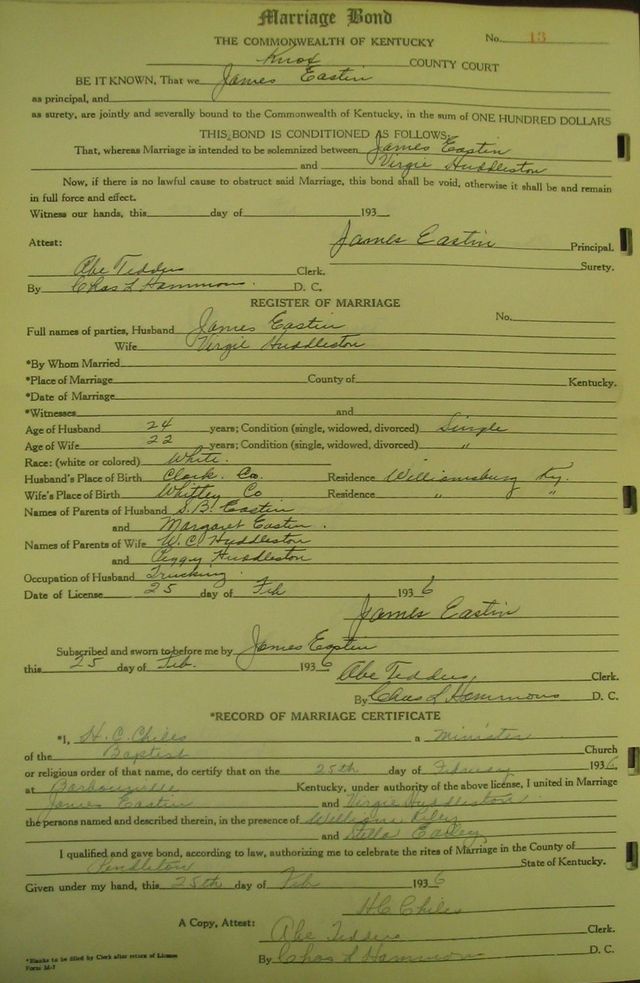 Marriage Bond
THE COMMONWEALTH OF KENTUCKY No. 13
Knox COUNTY COURT
BE IT KNOWN, That we James Eastin
as principal, and
as surety, are jointly and severally bound to the Commonwealth of Kentucky, in the sum of ONE HUNDRED DOLLARS
THIS BOND IS CONDITIONED AS FOLLOWS:
That, whereas Marriage is intended to be solemnized between James Eastin
and Virgie Huddleston
Now, if there is no lawful cause to obstruct said Marriage, this bond shall be void, otherwise it shall be and remain
in full force and effect.
Witness our hands, this day of 193
James Eastin Principal.
Attest:
Surety.
Abe Tedders Clerk.
By Chas L Hammons. D. C.
REGISTER OF MARRIAGE
No.
Full names of parties, Husband James Eastin
Wife Virgie Huddleston
*By Whom Married
*Place of Marriage County of Kentucky.
*Date of Marriage
*Witnesses and
Age of Husband 24 years; Condition (single, widowed, divorced) Single
Age of Wife 22 years; Condition (single, widowed, divorced) "
Race: (white or colored) White.
Husband's Place of Birth Clark Co. Residence Williamsburg Ky.
Wife's Place of Birth Whitley Co Residence " "
Names of Parents of Husband S.B. Eastin
and Margaret Eastin.
Names of Parents of Wife W.C. Huddleston
and Peggy Huddleston
Occupation of Husband Trucking.
Date of License 25 day of Feb 1936
James Eastin
Subscribed and sworn to before me by James Eastin
this 25 day of Feb. 1936 Abe Tedders, Clerk.
By Chas L Hammons D. C.
*RECORD OF MARRIAGE CERTIFICATE
*I, H.C. Chiles a Minister
of the Baptist Church
or religious order of that name, do certify that on the 25th day of February 1936
at Barbourville Kentucky, under authority of the above license, I united in Marriage
James Eastin and Virgie Huddleston
the persons named and described therein, in the presence of William Riley
and Stella Easley
I qualified and gave bond, according to law, authorizing me to celebrate the rites of Marriage in the County of
Pendleton State of Kentucky.
Given under my hand, this 25th day of Feb 1936
H.C. Chiles
A Copy, Attest: Abe Tedders Clerk.
By Chas L Hammons D. C.
*Blanks to be filled by Clerk after return of License
Form M-1